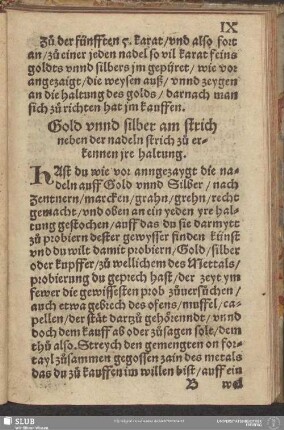 IX
Zů der fünfften 5. karat/vnd also fort
an/zů einer jeden nadel so vil karat feins
goldts vnnd silbers jm gepüret/wie vor
angezaigt/die weysen auß/vnnd zeygen
an die haltung des golds/darnach man
sich zů richten hat jm kauffen.
Gold vnnd silber am strich
neben der nadeln strich zů er-
kennen jre haltung.
HAst du wie vor anngezaygt die na-
deln auff Gold vnnd Silber/nach
Zentnern/marcken/grahn/grehn/recht
gemacht/vnd oßen an ein yeden yre hal-
tung gestochen/auff das du sie darmytt
zů probiern dester gewysser finden künst
vnd du wilt damit probiern/Gold/silber
oder kupffer/zů wellichem des Mettals/
probierung du geprech hast/der zeyt ym
fewer die gewissesten prob zůuersůchen/
auch etwa gebrech des ofens/muffel/ca-
pellen/der stät darzů gehörenndt/vnnd
doch dem kauff ab oder zůsagen solt/dem
thů also. Streych den gemengten on for-
tayl zůsammen gegossen zain des metals
das du zů kauffen im willen bist/auff ein
B
SLUB